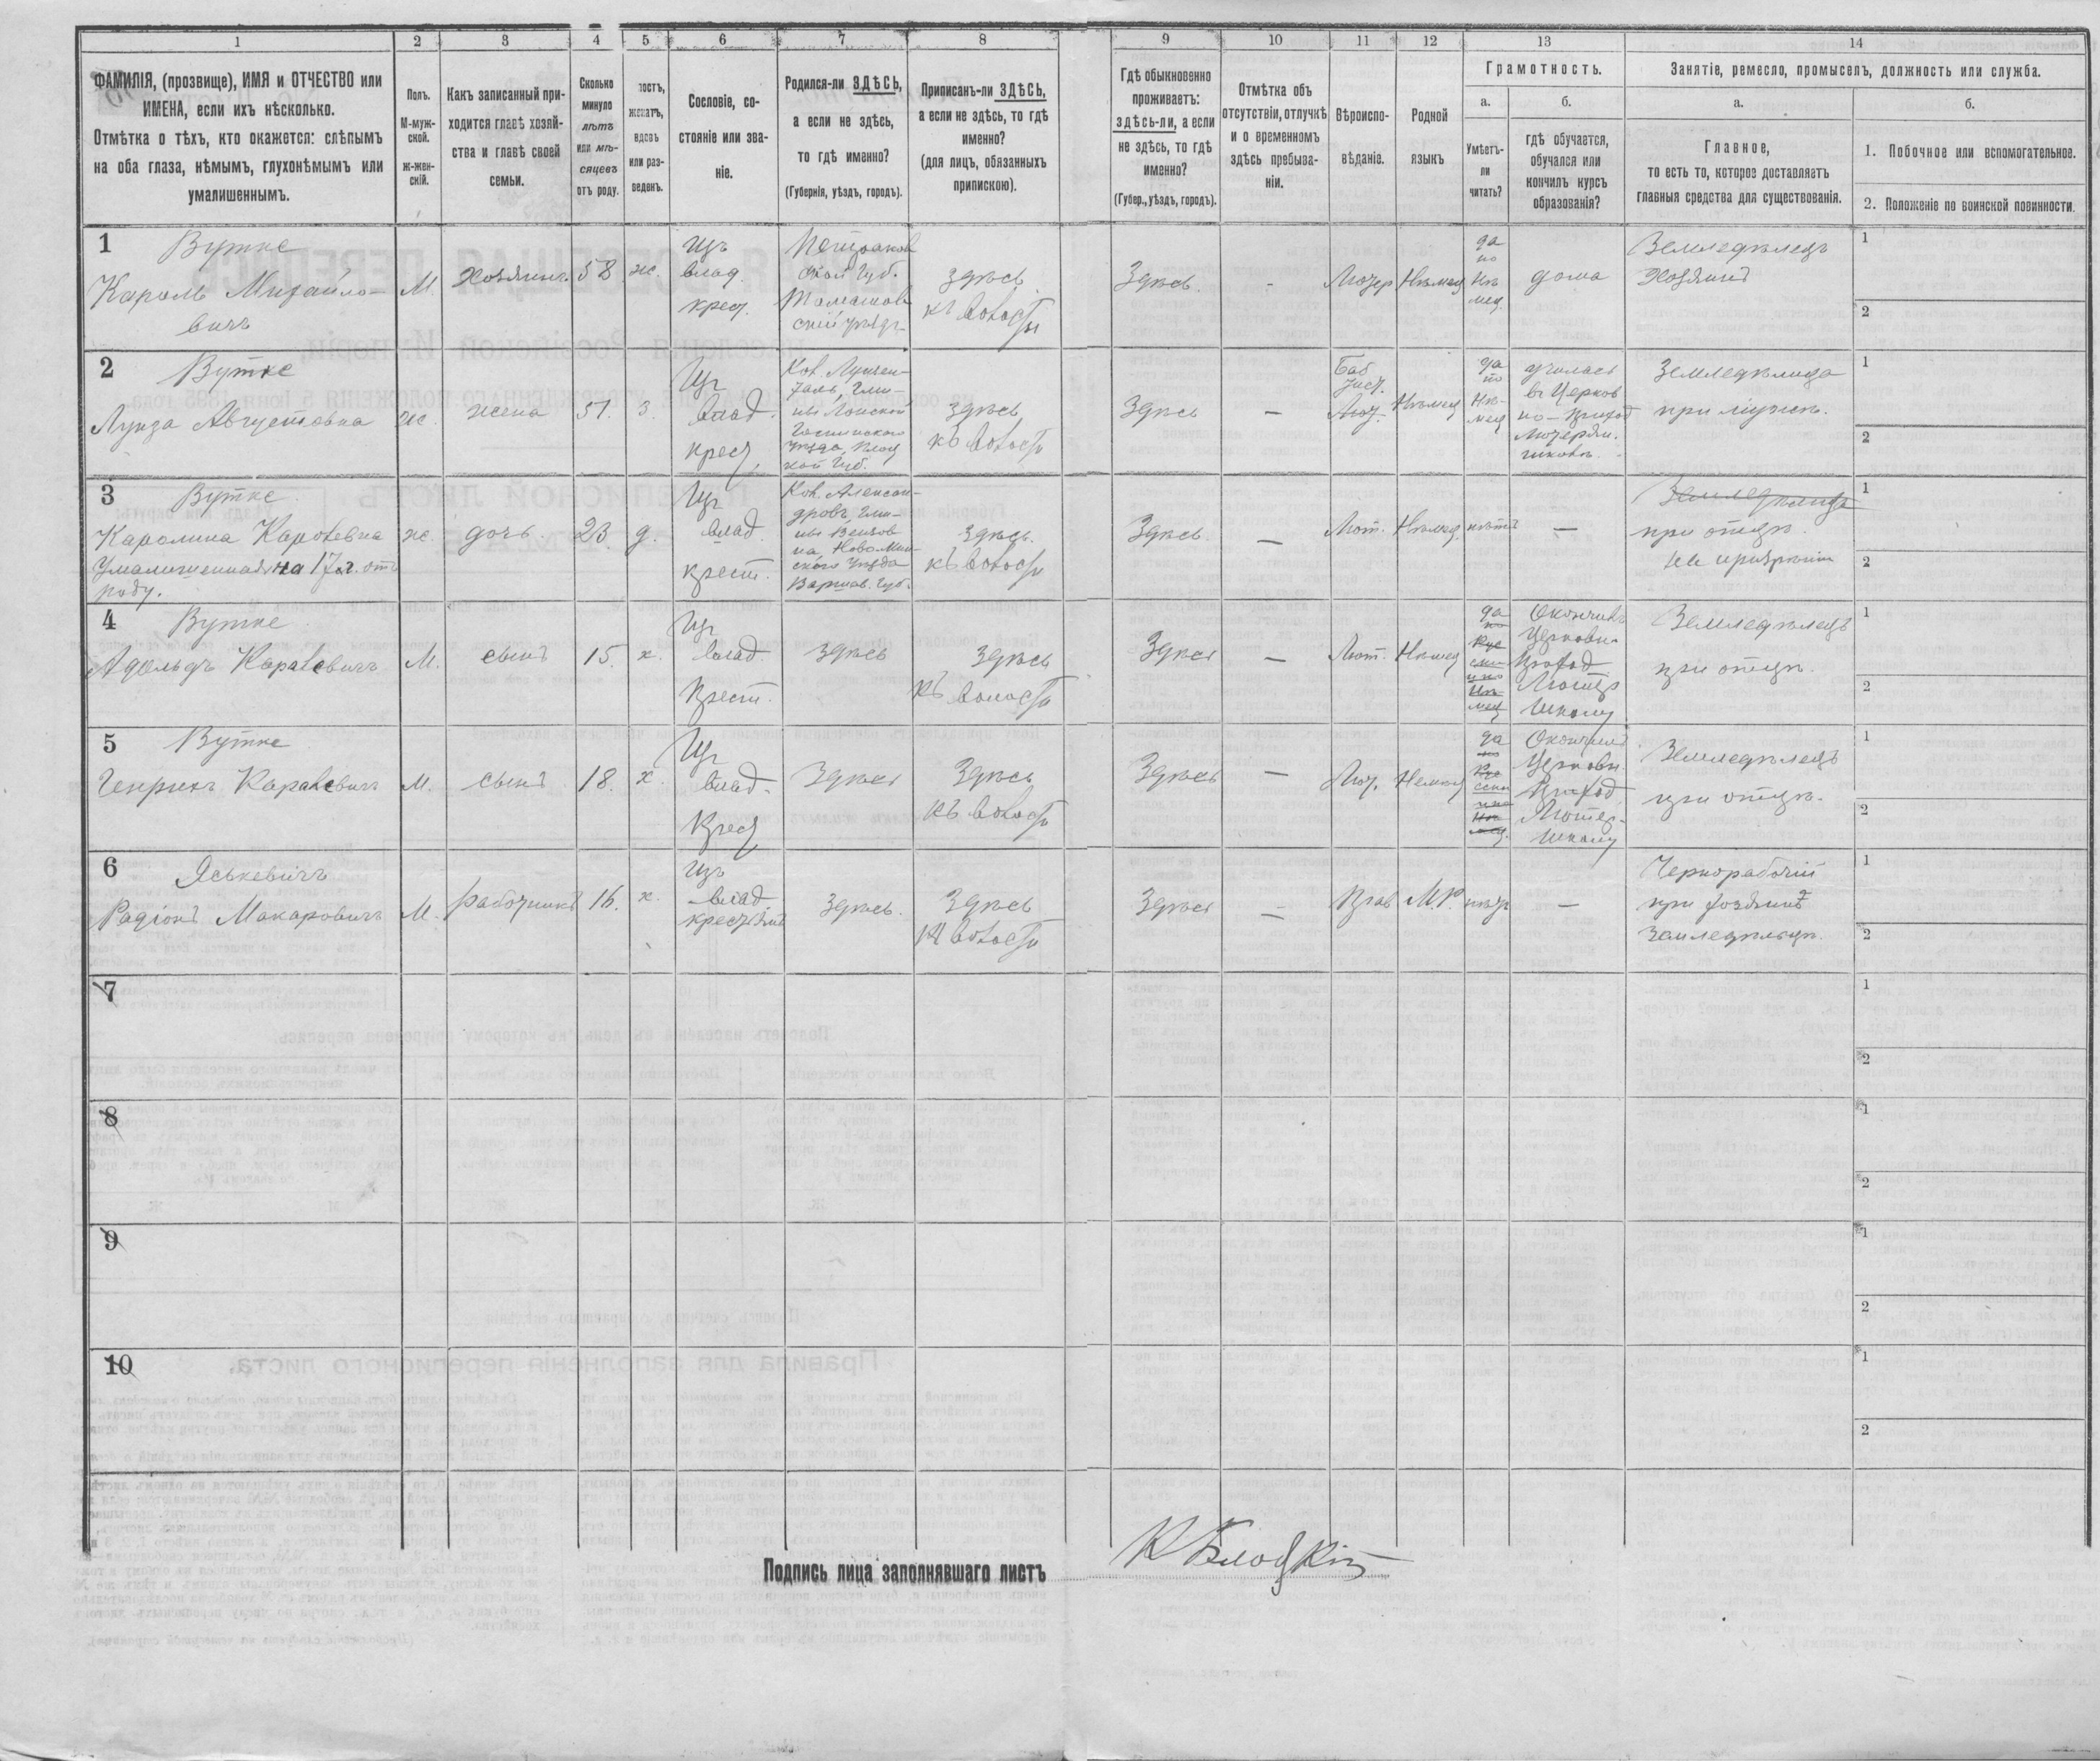 1 2 3 4 5 6 7 8 9 10 11 12 13 14
ФАМИЛІЯ, (прозвище), ИМЯ и ОТЧЕСТВО или
ИМЕНА, если ихъ нѣсколько.
Отмѣтка о тѣхъ, кто окажется: слѣпымъ
на оба глаза, нѣмымъ, глухонѣмымъ или
умалишеннымъ.
Полъ.
М-муж-
ской.
ж-жен-
скій.
Какъ записанный при-
ходится главѣ хозяй-
ства и главѣ своей
семьи.
Сколько
минуло
лѣтъ
или мѣ-
сяцевъ
отъ роду.
женатъ,
вдовъ
или раз-
веденъ.
Сословіе, со-
стояніе или зва-
ніе.
Родился-ли ЗДѢСЬ,
а если не здѣсь,
то гдѣ именно?
(Губернія, уѣздъ, городъ).
Приписанъ-ли ЗДѢСЬ,
а если не здѣсь, то гдѣ
именно?
(для лицъ, обязанныхъ
припискою).
Гдѣ обыкновенно
проживаетъ:
здѣсь-ли, а если
не здѣсь, то гдѣ
именно?
(Губер., уѣздъ, городъ).
Отмѣтка объ
отсутствіи, отлучкѣ
и о временномъ
здѣсь пребыва-
ніи.
Вѣроиспо-
вѣданіе.
Родной
языкъ
Грамотность.
а.
Умѣетъ-
ли
читать?
б.
гдѣ обучается,
обучался или
кончилъ курсъ
образованія?
Занятіе, ремесло, промыселъ, должность или служба.
а.
Главное,
то есть то, которое доставляетъ
главныя средства для существованія.
б.
1. Побочное или вспомогательное.
2. Положеніе по воинской повинности.
1
Вутке
Кароль Михайло-
вичъ
М.
Хозяинъ
58
ж.
Изъ
влад.
крес.
Томашов
здѣсь
къ волости
Здѣсь
-
Нѣмец
да
по
Нѣ
мец.
дома
Земледѣлецъ
Хозяинъ
1
2
2
Вутке
Луиза Августовна
ж.
жена
51.
з.
Из
влад.
крес.
здѣсь
къ волости
Здѣсь
—
Нѣмец
да
по
Нѣ-
мец
училась
въ Церков
но-приход
Земледѣлица
при мужѣ.
1
2
3
Вутке
Каролина Каролевна
Умалишенная на 17 г. отъ
роду.
ж.
дочь.
23
д.
Из
влад.
крест.
Кол. Алексан-
дровъ, Гми-
Ново Мин-
скаго Уѣзда
Варшав. Губ.
здѣсь.
къ волости
Здѣсь.
—
Лют.
Нѣмец.
нѣтъ
—
Земледѣлица
при отцѣ.
На призрѣніи
1
2
4
Вутке
Адольфъ Каролевичъ
М.
сынъ
15.
х.
Из
влад.
Крест.
здѣсь
здѣсь
къ волости
Здѣсь
—
Лют.
Нѣмец
да
по
Рус
ски
и по
Нѣ-
мец
Окончилъ
Церковн.
Приход
Лютер
Школу
Земледѣлецъ
при отцѣ.
1
2
5
Вутке
Генрихъ Каролевичъ
М.
сынъ
18.
х.
Из
влад.
Крес
Здѣсь
Здѣсь
къ волости
Здѣсь
—
Лют.
Немец
да
по
Рус
ски
и по
Нѣ
мец.
Окончилъ
Церковн.
Приход
Лютер.
Школу
Земледѣлецъ
при отцѣ.
1
2
6
Яськевичъ
Радіонъ Макаровичъ
М.
Работникъ
16.
х.
Изъ
влад
Здѣсь.
Здѣсь
къ волости
Здѣсь
—
Прав
МР.
нѣт
—
Чернорабочій
при хозяинѣ
Земледѣльцѣ.
1
2
7
1
2
8
1
2
9
1
2
10
1
2
Подпись лица заполнявшаго листъ